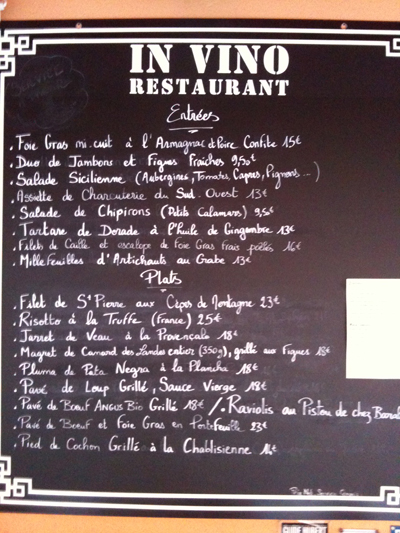 IN VINO
RESTAURANT
Entrées
. Foie Gras mi.cuit à l'Armagnac et Poire Confite 15€
. Duo de Jambons et Figues Fraîches 9,50€
. Salade Sicilienne (Aubergines, Tomates, Capres, Pignons...)
. Assiette de Charcuterie du Sud Ouest 13€
. Salade de Chipirons (Petits Calamars) 9,50€
. Tartare de Dorade à l'huile de Gingembre 13€
. Filets de Caille et escalope de Foie Gras frais poêlés 16€
. Mille Feuilles d'Artichauts au Crabe 13€
Plats
. Filet de St Pierre aux Cèpes de Montagne 23€
. Risotto à la Truffe (France) 25€
. Jarret de Veau à la Provençale 18€
. Magret de Canard des Landes entier (350g), grillé aux Figues 18€
. Pluma de Pata Negra à la Plancha 18€
. Pavé de Loup Grillé, Sauce Vierge 18€
. Pavé de Boeuf Angus Bio Grillé 18€ /. Raviolis au Pistou de chez
. Pavé de Boeuf et Foie Gras en Portefeuille 23€
. Pied de Cochon Grillé à la Chablisienne 14€